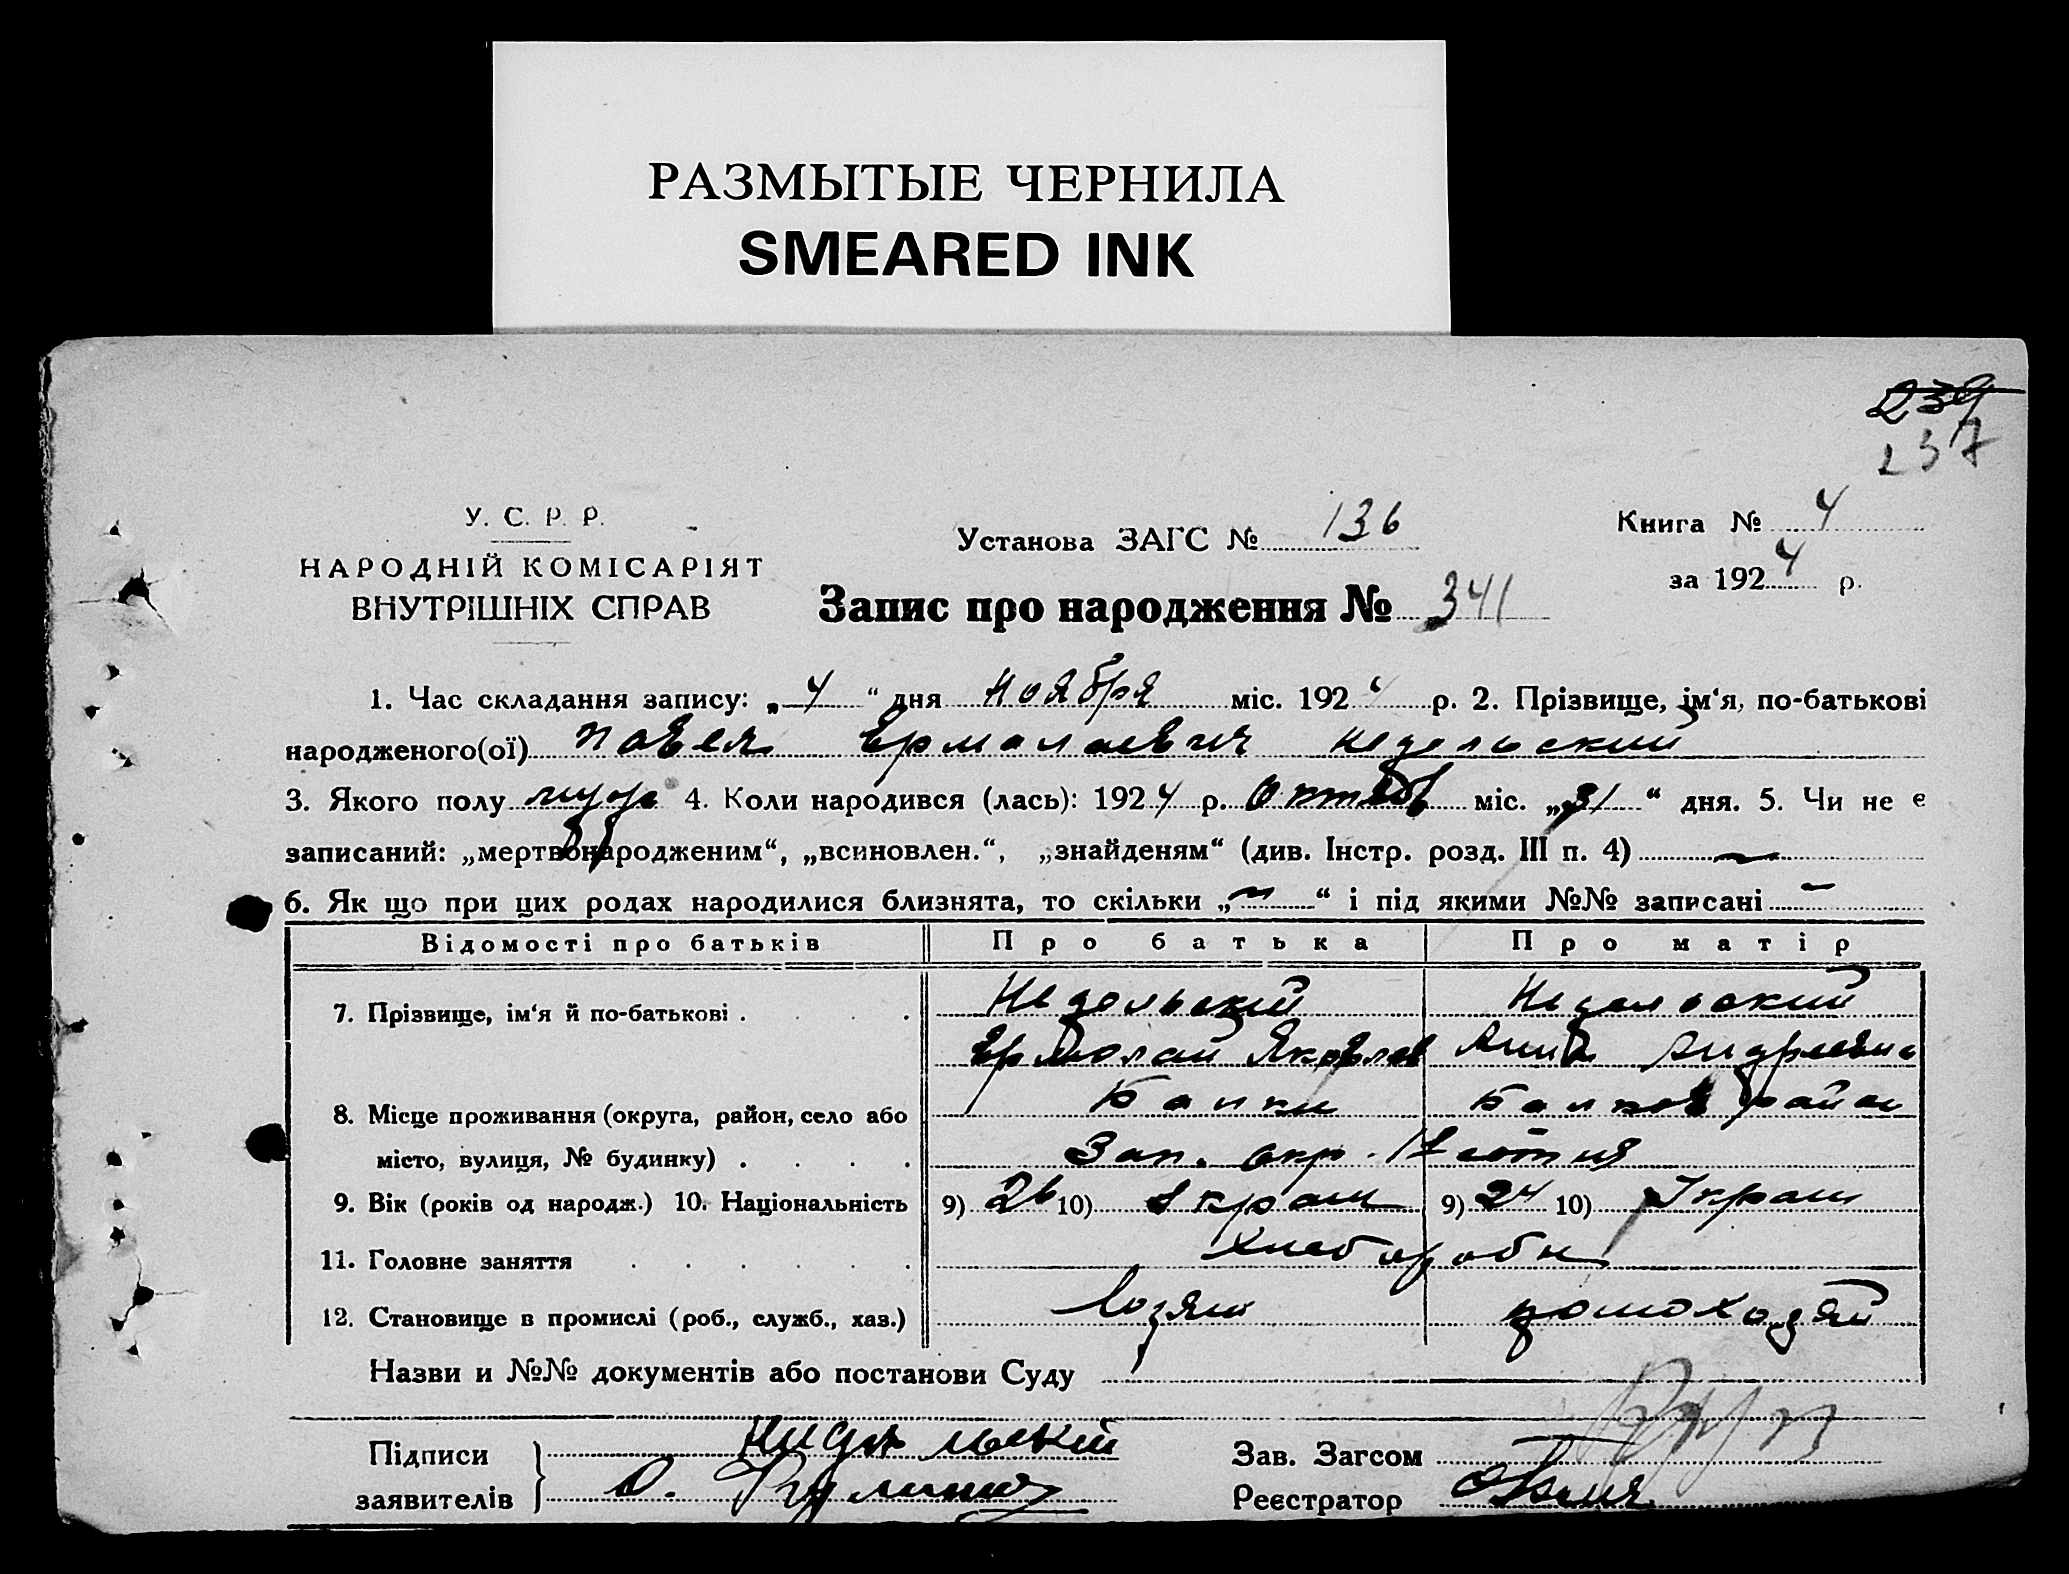 РАЗМЫТЫЕ ЧЕРНИЛА
SMEARED INK
239
237
У. С. Р. Р.
НАРОДНІЙ КОМІСАРІЯТ
ВНУТРІШНІХ СПРАВ
Установа ЗАГС № 136
Книга № 4
за 1924 р.
Запис про народження № 341
1. Час складання запису: „4“ дня Ноября міс. 1924 р. 2. Прізвище, ім‘я, по-батькові
народженого(ої) Павел Ермолаевич Недельский
3. Якого полу муж 4. Коли народився (лась): 1924 р. Октяб міс. „31“ дня. 5. Чи не є
записаний: „мертвонародженим“, „всиновлен.“, „знайденям“ (див. Інстр. розд. III п. 4) —
6. Як що при цих родах народилися близнята, то скільки „—“ і під якими №№ записані —
Відомості про батьків Про батька Про матір
7. Прізвище, ім‘я й по-батькові . . . . Недельский Недельский
Ермолай Яковлев Анна Андреевна
8. Місце проживання (округа, район, село або Балки Балков район
місто, вулиця, № будинку) . . . . Зап. окр.
9. Вік (років од народж.) 10. Національність 9) 26 10) Украин 9) 24 10) Украин
11. Головне заняття . . . . . . Хлебороби
12. Становище в промислі (роб., служб., хаз.) Хозяин домохозяй
Назви и №№ документів або постанови Суду
Підписи
заявителів
Зав. Загсом
Реєстратор